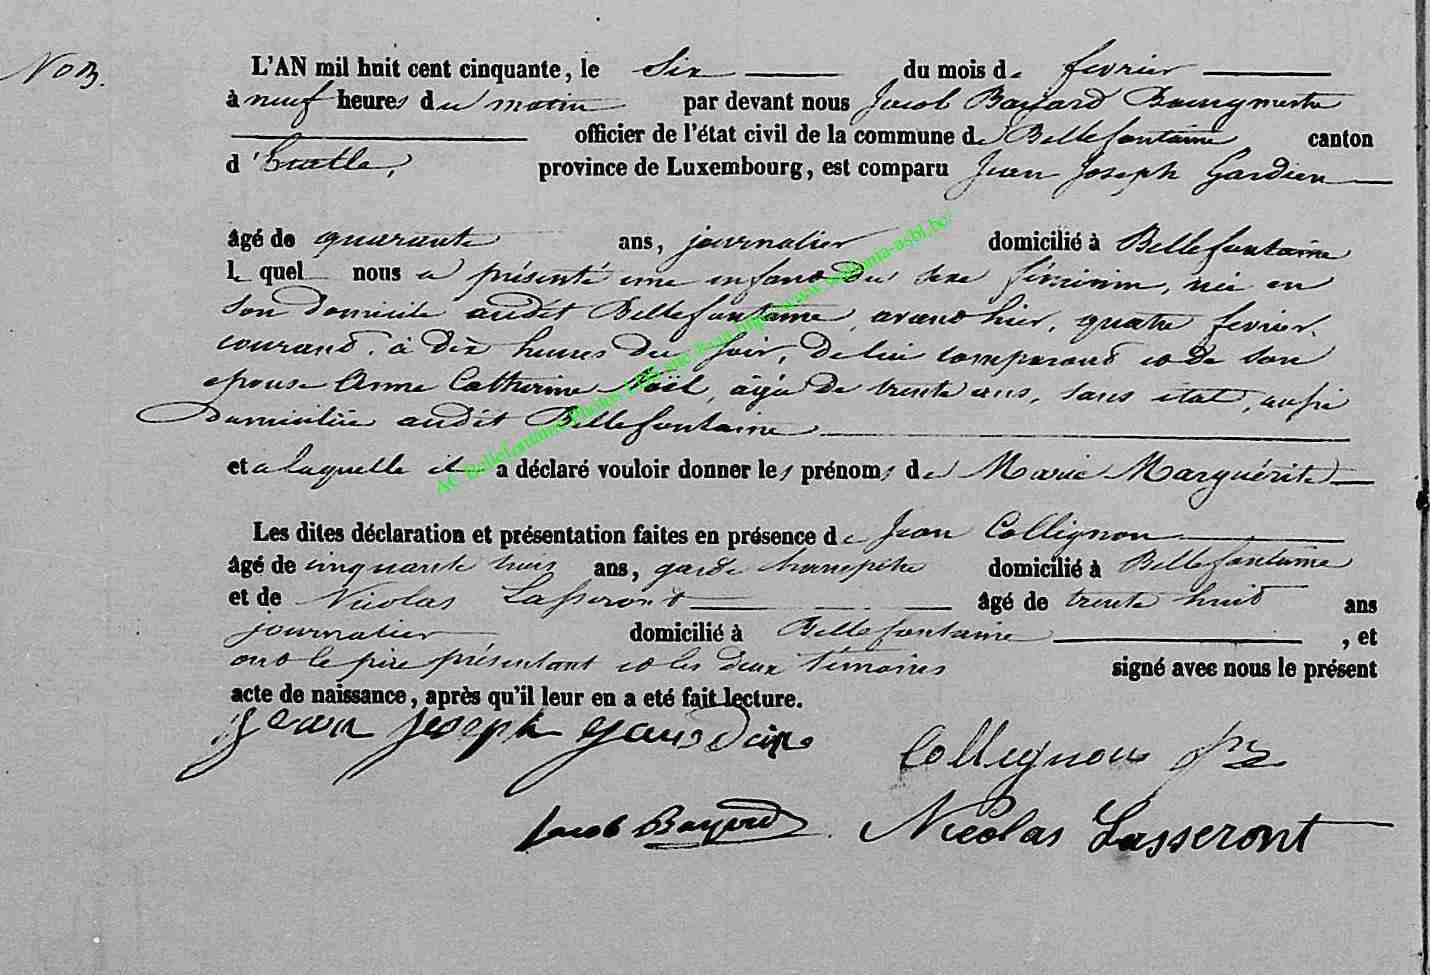 No 3.
L'AN mil huit cent cinquante, le Six du mois de fevrier
à neuf heures du matin par devant nous Jacob Bayard Bourgmestre
officier de l'état civil de la commune de Bellefontaine canton
d'Etalle, province de Luxembourg, est comparu Jean Joseph Gardien
âgé de quarante ans, journalier domicilié à Bellefontaine
Lequel nous a présenté une enfant du sexe féminin, née en
son domicile audit Bellefontaine, avant hier, quatre fevrier
courant, à dix heures du soir, de lui comparant et de son
epouse Anne Catherine Noël, âgée de trente ans, sans état, aussi
domiciliée audit Bellefontaine
et a laquelle il a déclaré vouloir donner les prénoms de Marie Marguérite
Les dites déclaration et présentation faites en présence de Jean Collignon
âgé de cinquante trois ans, garde champêtre domicilié à Bellefontaine
et de Nicolas Lasseront âgé de trente huit ans
journalier domicilié à Bellefontaine, et
ont le père présentant et les deux témoins signé avec nous le présent
acte de naissance, après qu'il leur en a eté fait lecture.
Jean Joseph Collignon
Jacob Bayard Nicolas Lasseront
AC Bellefontaine